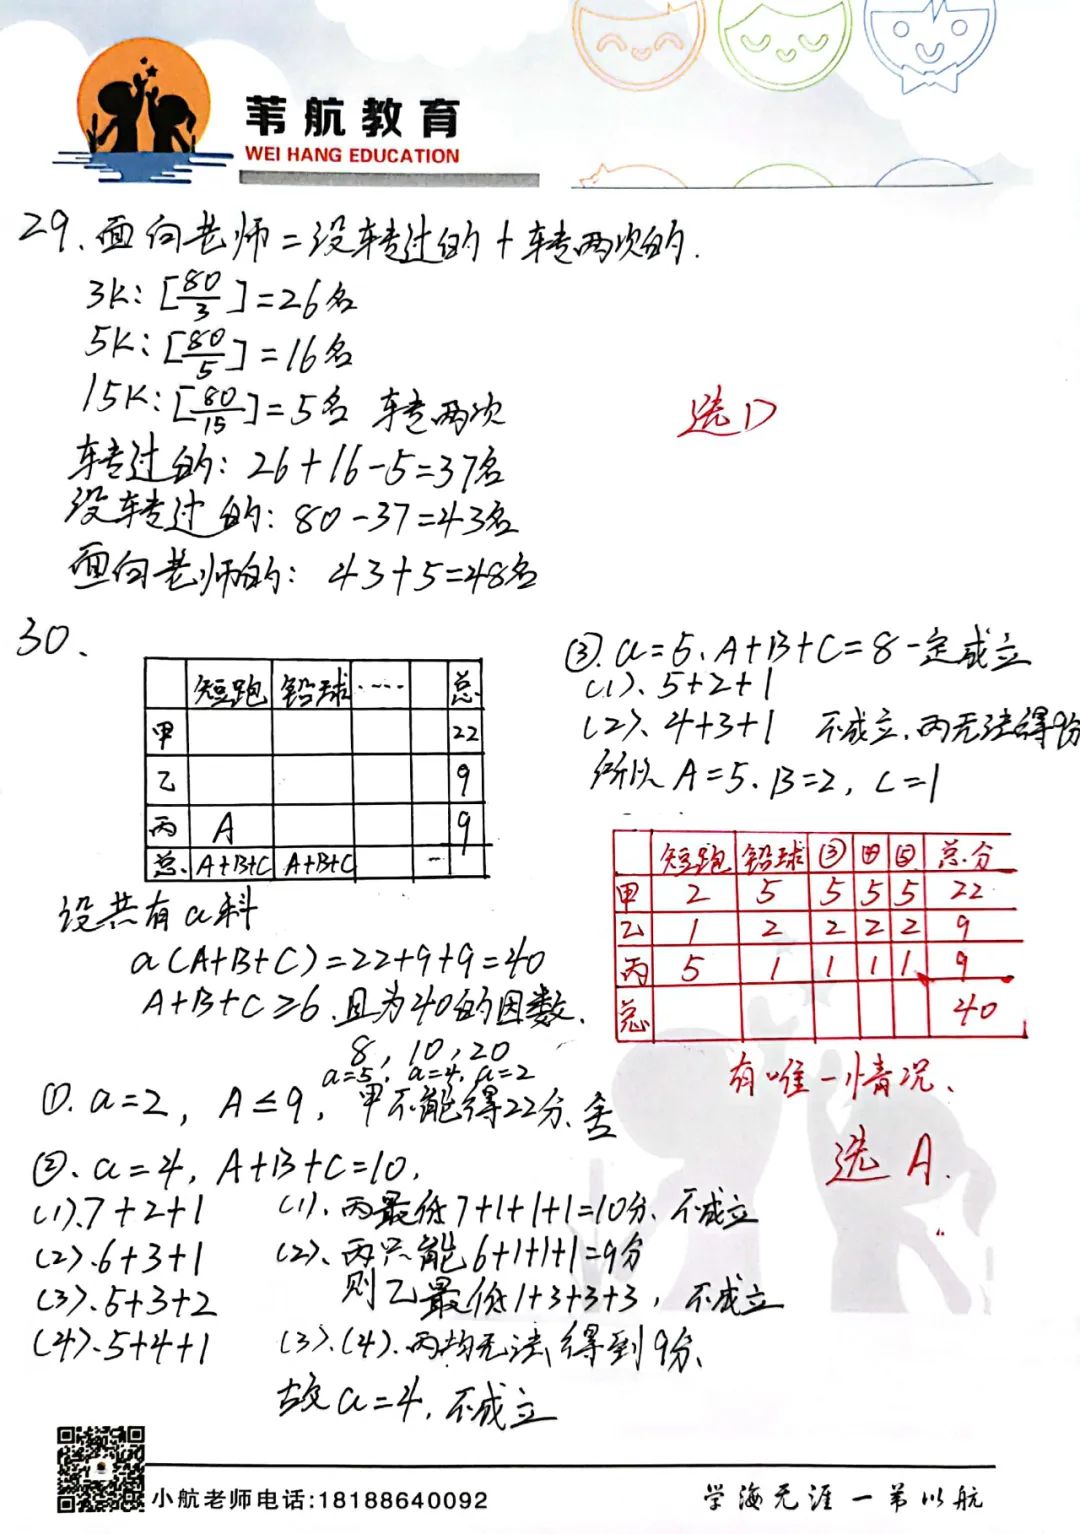 苇航教育
WEI HANG EDUCATION
29、面向老师=没转过的+转两次的.
3K: [80/3]=26名
5K: [80/5]=16名
15K: [80/15]=5名 转两次
选D
转过的: 26+16-5=37名
没转过的: 80-37=43名
面向老师的: 43+5=48名
30、
短跑 铅球 ..... 总
甲 22
乙 9
丙 A 9
总 A+B+C A+B+C ...
设共有a科
a(A+B+C)=22+9+9=40
A+B+C≥6.且为40的因数.
8, 10, 20
a=5, a=4, a=2
①. a=2, A≤9, 甲不能得22分.舍
②. a=4, A+B+C=10.
(1).7+2+1 (1)、丙最低7+1+1+1=10分、不成立
(2).6+3+1 (2)、丙只能6+1+1+1=9分
则乙最低1+3+3+3, 不成立
(3).5+3+2
(4).5+4+1 (3).(4).丙均无法得到9分、
故a=4.不成立
③. a=5、A+B+C=8一定成立
(1)、5+2+1
(2)、4+3+1 不成立.丙无法得9分
所以 A=5、B=2, C=1
短跑 铅球 ③ 四 五 总分
甲 2 5 5 5 5 22
乙 1 2 2 2 2 9
丙 5 1 1 1 1 9
总 40
有唯一情况、
选A.
小航老师电话:18188640092
学海无涯一苇以航